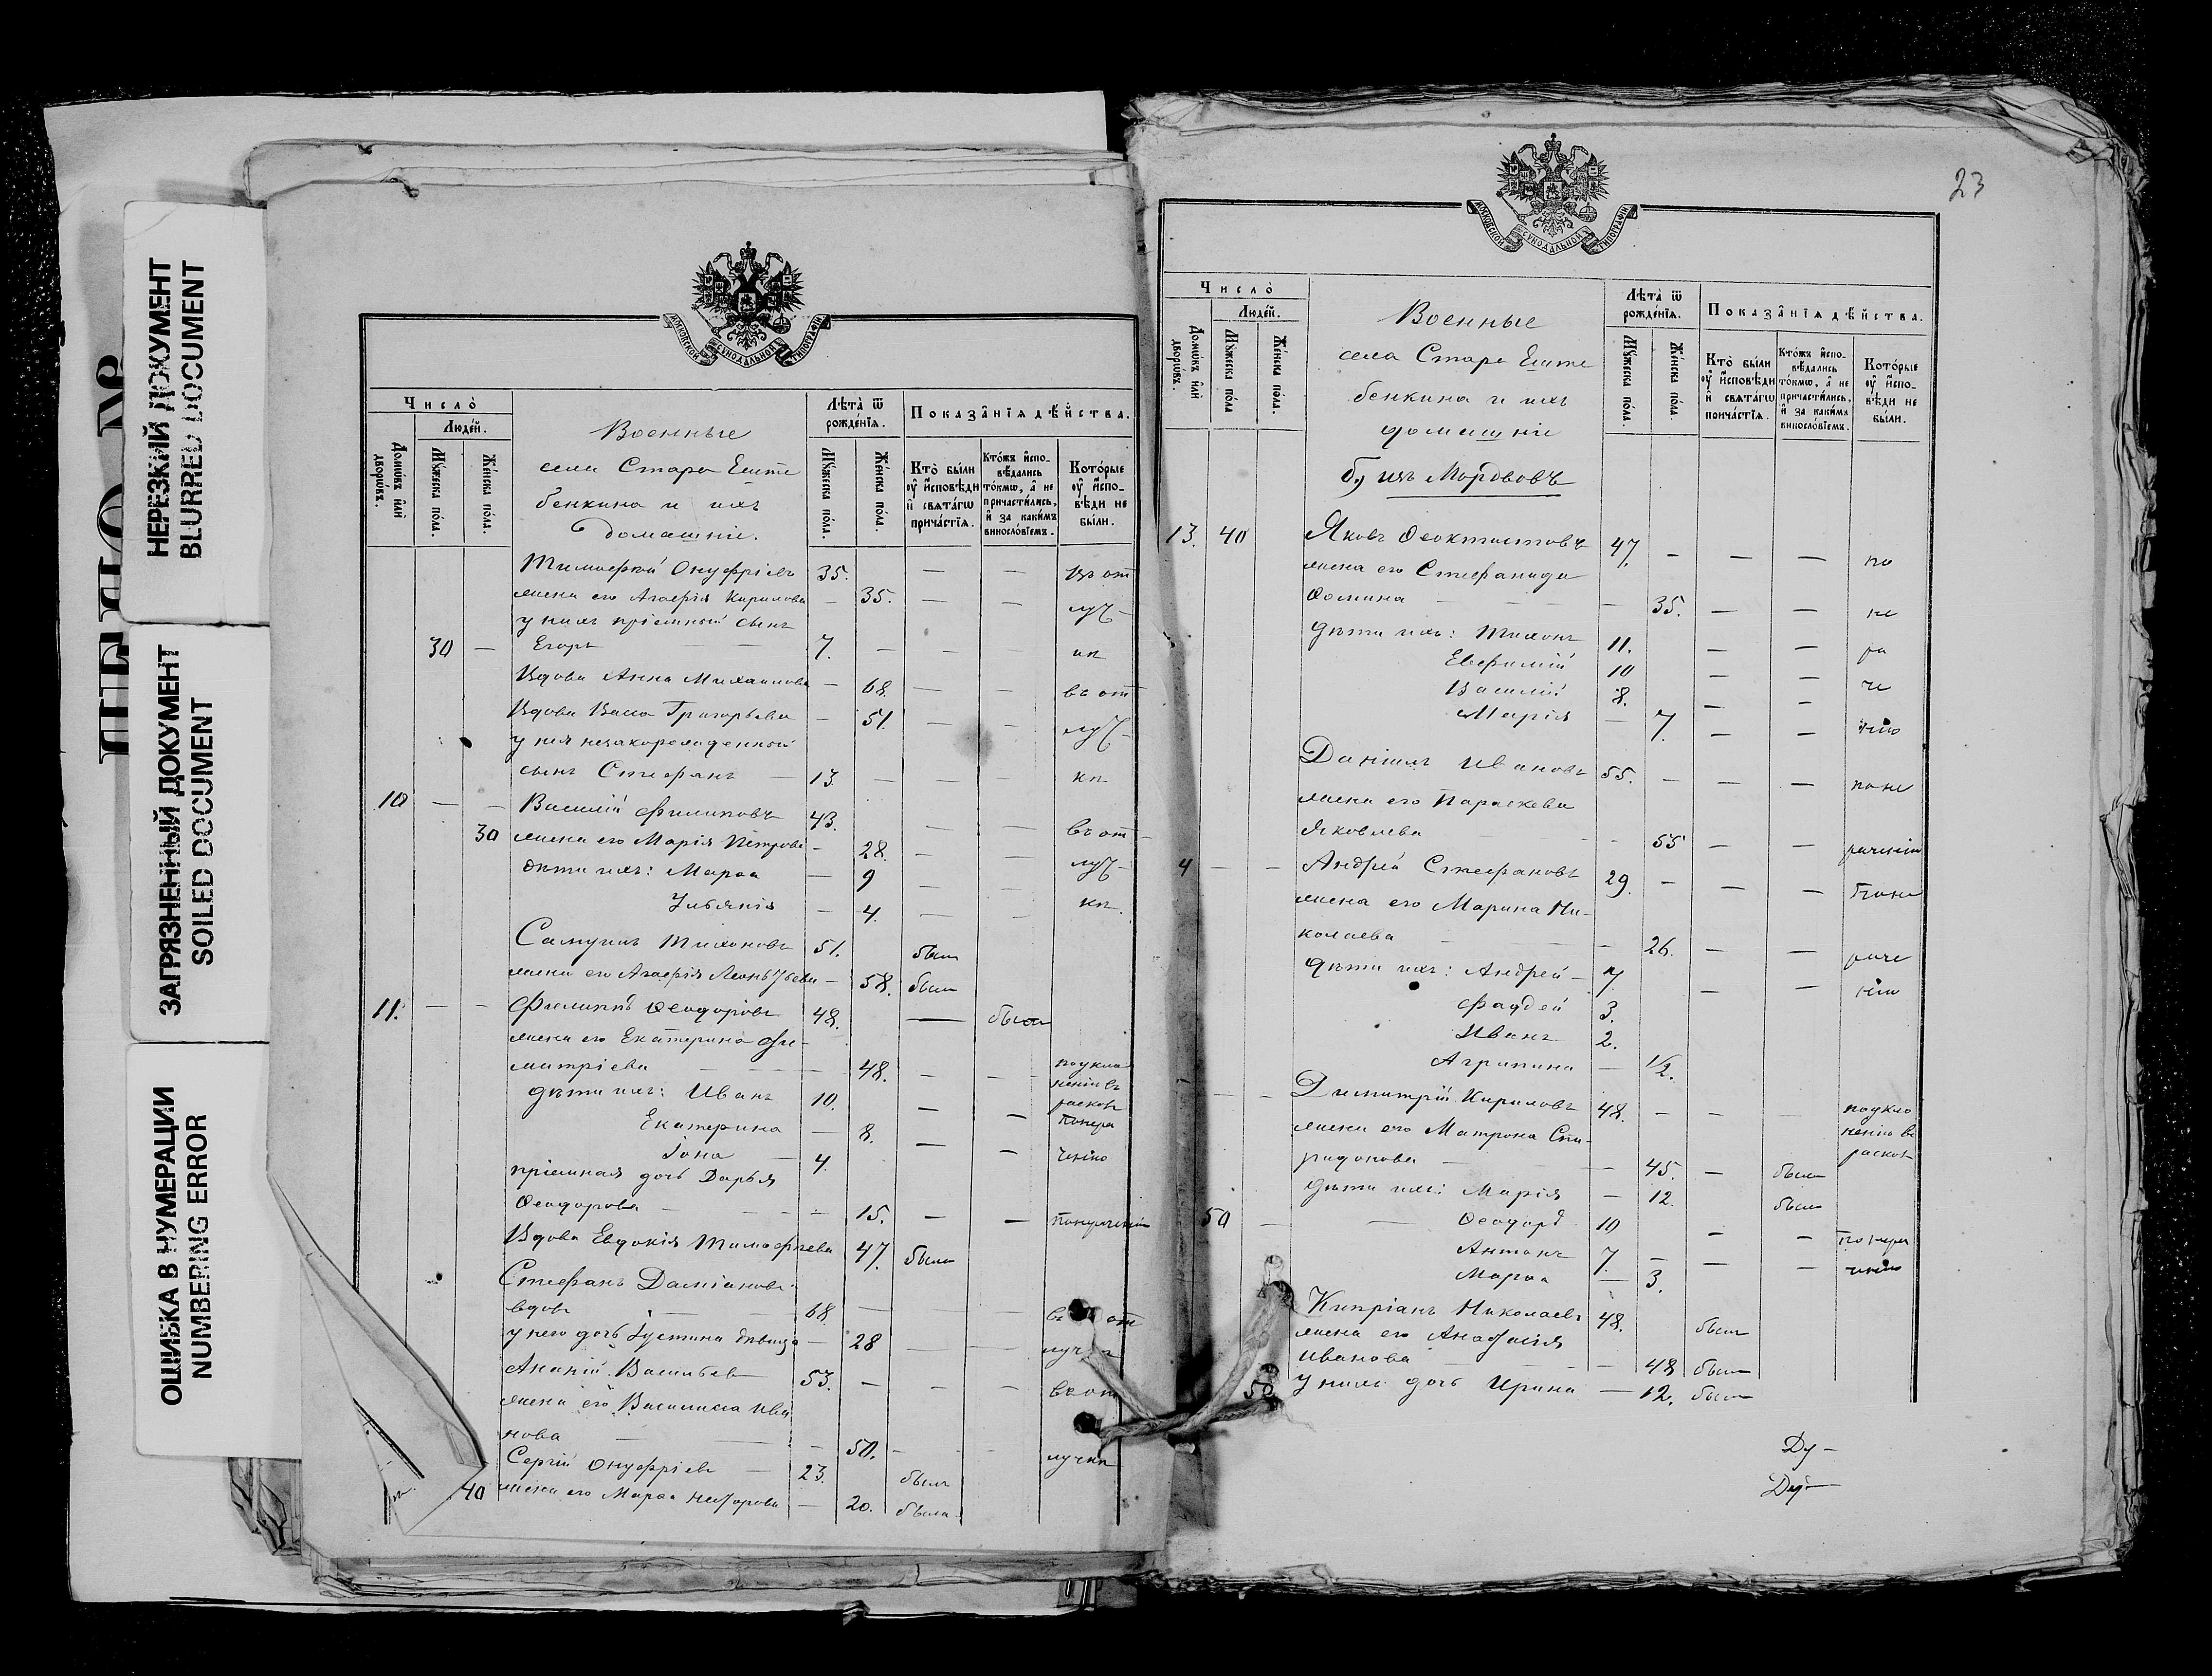 НЕРЕЗКИЙ ДОКУМЕНТ
BLURRED DOCUMENT
ЗАГРЯЗНЕННЫЙ ДОКУМЕНТ
SOILED DOCUMENT
ОШИБКА В НУМЕРАЦИИ
NUMBERING ERROR
МОСКОВСКОЙ СѴНОДАЛЬНОЙ ТИПОГРАФІИ
Число̀
Люде́й.
Домѡ́въ и҆лѝ дворѡ́въ.
Мꙋ́жеска по́ла.
Же́нска по́ла.
Военные
села Старо Еште
бенкина и ихъ
домашніе.
Лѣ́та ѿ рожде́нїѧ.
Мꙋ́жеска по́ла.
Же́нска по́ла.
Показа̑нїѧ дѣ́йства.
Кто̀ бы́ли ᲂу҆ и҆сповѣ́ди и҆ свѧта́гѡ прича́стїѧ.
Кто́жъ и҆спо-
вѣ́дались
то́кмѡ, а҆ не
причасти́лись,
и҆ за каки́мъ
винносло́вїемъ.
Кото́рые ᲂу҆ и҆спо-
вѣ́ди не
бы́ли.
Тимофей Онуфріевъ 35. — — въ от
жена его Агафія Кирилова — 35. — — луч-
у нихъ пріемный сынъ
30 — Егоръ — — 7. — — кѣ
Вдова Анна Михаилова — 68. — — въ от
Вдова Васса Григорьева — 51. — — луч-
у нея незаконорожденный
сынъ Стефанъ — 13. — — — кѣ
10 — — Василій Филиповъ 43. — — въ от-
30 жена его Марія Петрова — 28. — — луч-
дѣти ихъ: Марѳа — 9 — —
Ульянія — 4. — — кѣ.
Самуилъ Тихоновъ 51. былъ
жена его Агафія Леонтьева — 58. была
11. — — Филиппъ Ѳеодоровъ 48. — былъ
жена его Екатерина Ди-
митріева — — — 48. — — по укло
нению въ
дѣти ихъ: Иванъ 10. — — раскол
Екатерина — 8. — — по нера
Іона — 4. чению
пріемная дочь Дарья
Ѳеодорова — — — 15. — —
Вдова Евдокія Тимофеева 47. была
Стефанъ Даміановъ
вдовъ — — 68. — — въ от
у него дочь Іустина дѣвица — 28 — —
Ананій Васильевъ 53. — — — въ от
жена его Василиса Ива
нова — — — 50. — — — лучкѣ
Сергій Онуфріевъ — 23. былъ
40 жена его Марѳа — 20. была
23
МОСКОВСКОЙ СѴНОДАЛЬНОЙ ТИПОГРАФІИ
Число̀
Люде́й.
Домѡ́въ и҆лѝ дворѡ́въ.
Мꙋ́жеска по́ла.
Же́нска по́ла.
Военные
села Старо Еште
бенкина и ихъ
домашніе
б) изъ Мордвовъ
Лѣ́та ѿ рожде́нїѧ.
Мꙋ́жеска по́ла.
Же́нска по́ла.
Показа̑нїѧ дѣ́йства.
Кто̀ бы́ли ᲂу҆ и҆сповѣ́ди и҆ свѧта́гѡ прича́стїѧ.
Кто́жъ и҆спо-
вѣ́дались
то́кмѡ, а҆ не
причасти́лись,
и҆ за каки́мъ
винносло́вїемъ.
Кото́рые ᲂу҆ и҆спо-
вѣ́ди не
бы́ли.
13. 40 Яковъ Ѳеоктистовъ 47. — — — по
жена его Стефанида
Ѳомина — — — 35. — — не
дѣти ихъ: Тихонъ 11. — — ра
Евфимій 10 — — че
Василій 8. — —
Марія — 7. — — нію
Даніилъ Ивановъ 55. — — — по не
жена его Параскева
Яковлева — — — 55 — — раченію
4 — — Андрей Стефановъ 29. — — — По не
жена его Марина Ни-
колаева — — — 26. — — раче
дѣти ихъ: Андрей — 7. — — нію
Фаддей 3.
Иванъ 2.
Агрипина — ½.
— — Димитрій Кириловъ 48. — — — по укло
жена его Матрона Спи- нению въ
ридонова — — — 45. — была раскол
дѣти ихъ: Марія — 12. была
50 — — Ѳеодоръ 10 — — По нера
Антонъ 7. — — — чению
Марѳа — 3.
Кипріанъ Николаевъ 48. былъ
жена его Анастасія
Иванова — — — 48 была
50 у нихъ дочь Ирина — 12. была
Ду-
Ду-